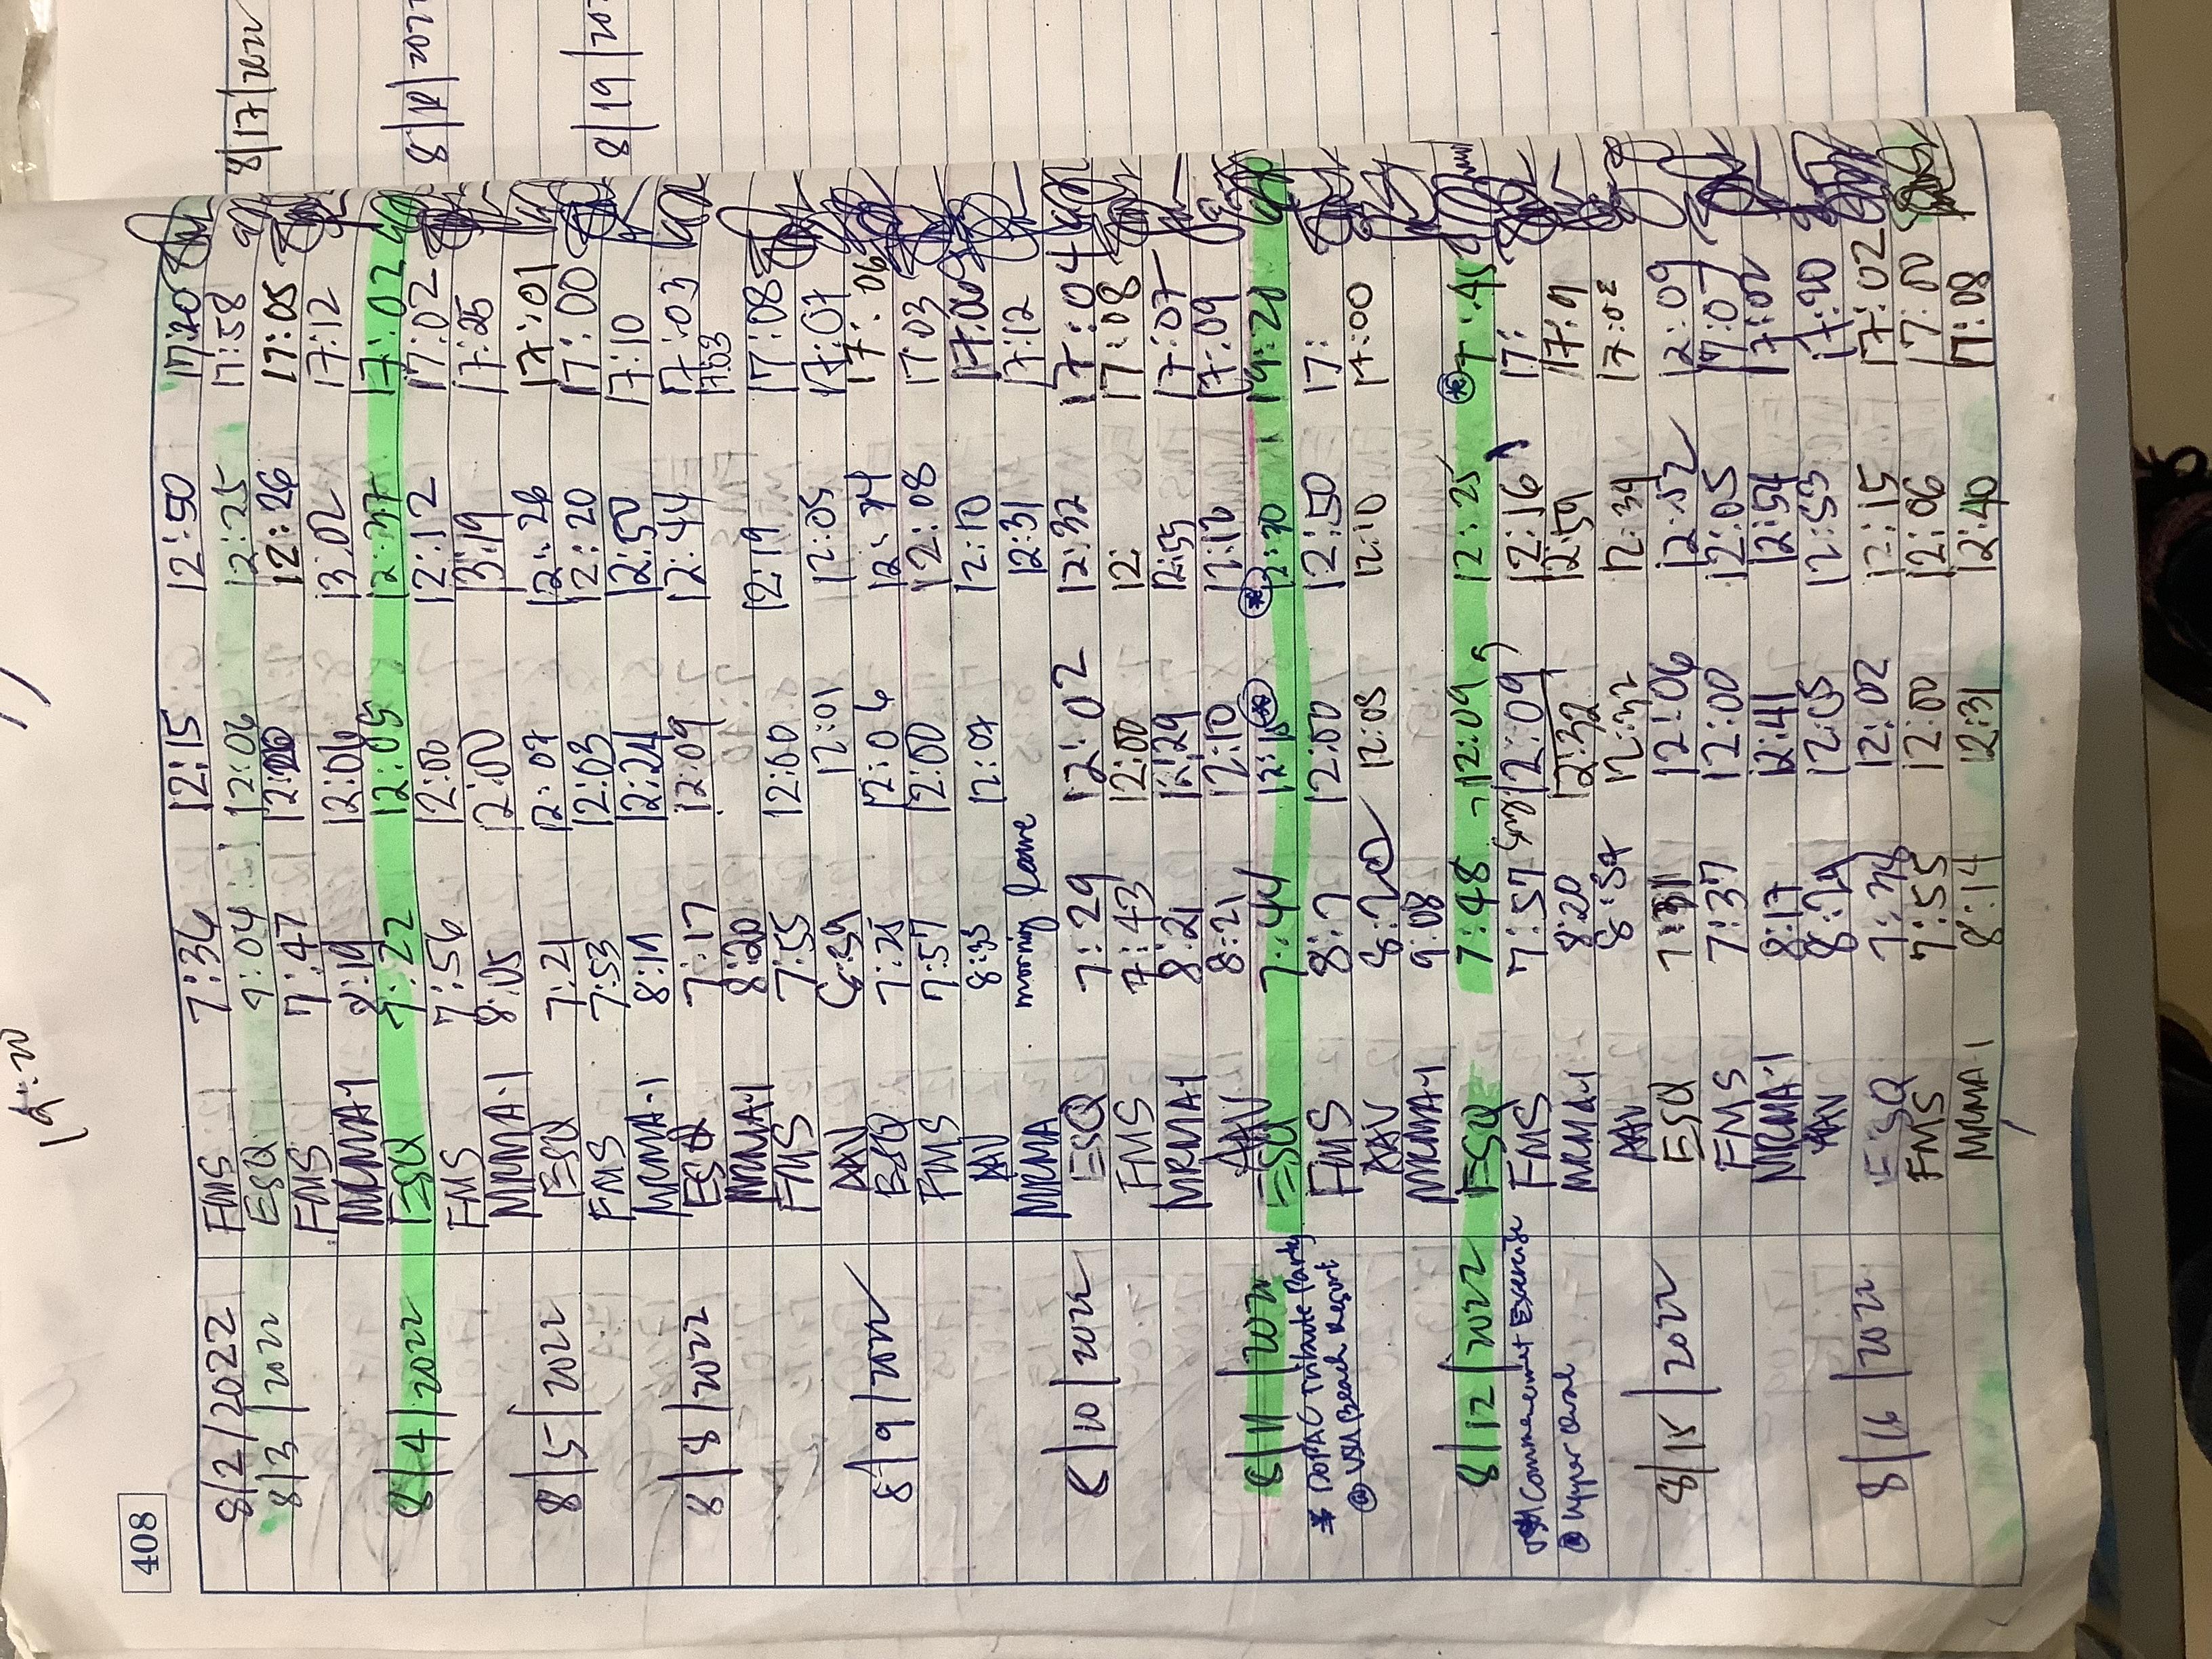 408
8/2/2022 FMS 7:36 12:15 12:50 17:20
8/3/2022 ESQ 9:04 12:06 12:25 17:58
FMS 7:47 12:26 17:05
MRMA-1 8:19 12:06 13:02 17:12
8/4/2022 ESQ 7:22 12:05 12:37 17:02
FMS 7:56 12:00 12:12 17:02
MRMA-1 8:05 12:00 13:19 17:25
8/5/2022 ESQ 7:21 12:07 12:26 17:01
FMS 7:53 12:03 12:20 17:00
MRMA-1 8:19 12:24 12:50 17:10
8/8/2022 ESQ 7:17 12:09 12:44 17:03
MRMA-1 8:20 17:03
FMS 7:55 12:00 12:19 17:08
AAV 12:01 12:05 17:07
8/9/2022 ESQ 7:25 12:04 17:06
FMS 7:57 12:00 12:08 17:03
AAV 8:33 12:07 12:10 17:06
MRMA morning leave 12:31 17:12
8/10/2022 ESQ 7:29 12:02 12:32 17:04
FMS 7:43 12:00 12: 17:08
MRMA-1 8:21 12:29 12:55 17:07
AAV 8:21 12:10 12:12 17:09
8/11/2022 ESQ 7:44 12:10 12:30 19:20
* DOPAC Tribute Party FMS 8:7 12:00 12:50 17:
@ VSU Beach Resort AAV 12:08 12:10 17:00
MRMA-1 9:08
8/12/2022 ESQ 7:48 - 12:09 12:25 7:45
Commencement Exercise FMS 7:57 12:09 12:16 17:
@ Upper Oval MRMA-1 8:20 12:32 12:59 17:9
AAV 8:57 12:32 12:34 17:02
8/15/2022 ESQ 7:31 12:06 12:52 12:09
FMS 7:37 12:00 12:05 17:07
MRMA-1 8:17 12:41 12:54 17:02
AAV 12:05 12:53 17:20
8/16/2022 ESQ 12:02 12:15 17:02
FMS 7:55 12:00 12:06 17:00
MRMA-1 8:14 12:31 12:40 17:08
8/17/2022
8/18/202
8/19/20